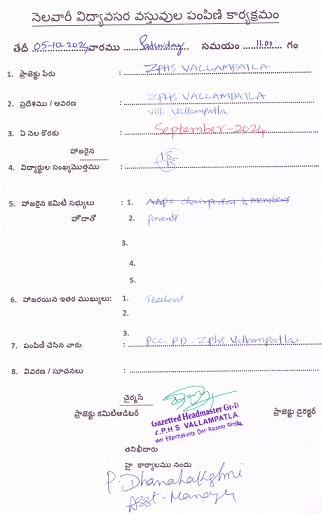 నెలవారీ విద్యావసర వస్తువుల పంపిణి కార్యక్రమం
తేదీ 05-10-2024 వారము Saturday సమయం 11.00 గం
1. ప్రాజెక్టు పేరు : ZPHS VALLAMPATLA
2. ప్రదేశము / ఆవరణ : ZPHS VALLAMPATLA
Vill. Vallampatla
3. ఏ నెల కొరకు : September-2024
హాజరైన
4. విద్యార్థుల సంఖ్యమొత్తము :
5. హాజరైన కమిటీ సభ్యులు : 1. AAPC chairperson & members
హోదాతో 2. parents
3.
4.
5.
6. హాజరయిన ఇతర ముఖ్యులు: 1. Teachers
2.
3.
7. పంపిణి చేసిన వారు : PCC. PD. ZPHS Vallampatla
8. వివరణ / సూచనలు :
చైర్మన్
ప్రాజెక్టు కమిటీఆడిటర్ ప్రాజెక్టు డైరెక్టర్
Gazetted Headmaster Gr-II
Z.P.H S VALLAMPATLA
తనిఖీదారు
హై కార్యాలము నందు
P. Dhanalakshmi
Asst-Manager